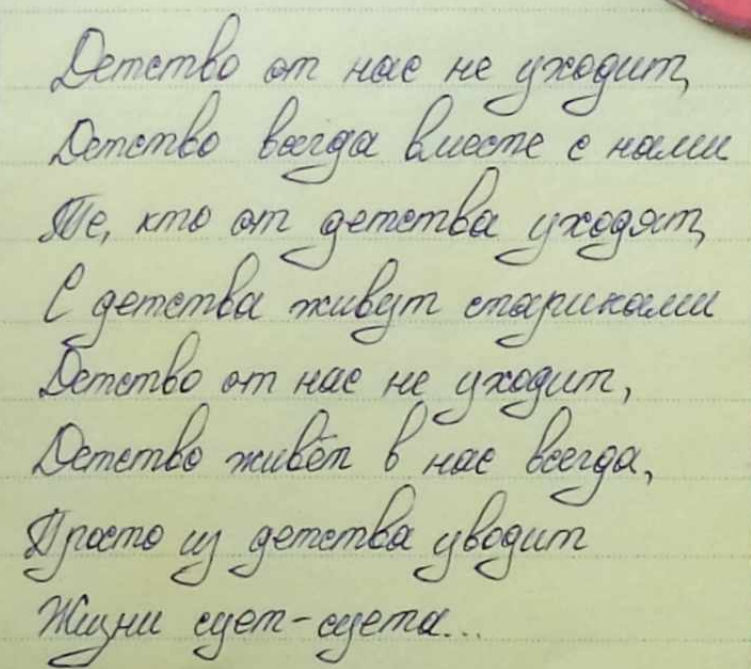 Детство от нас не уходит,
Детство всегда вместе с нами
Те, кто от детства уходят,
С детства живут стариками
Детство от нас не уходит,
Детство живёт в нас всегда,
Просто из детства уводит
Жизни сует-суета...